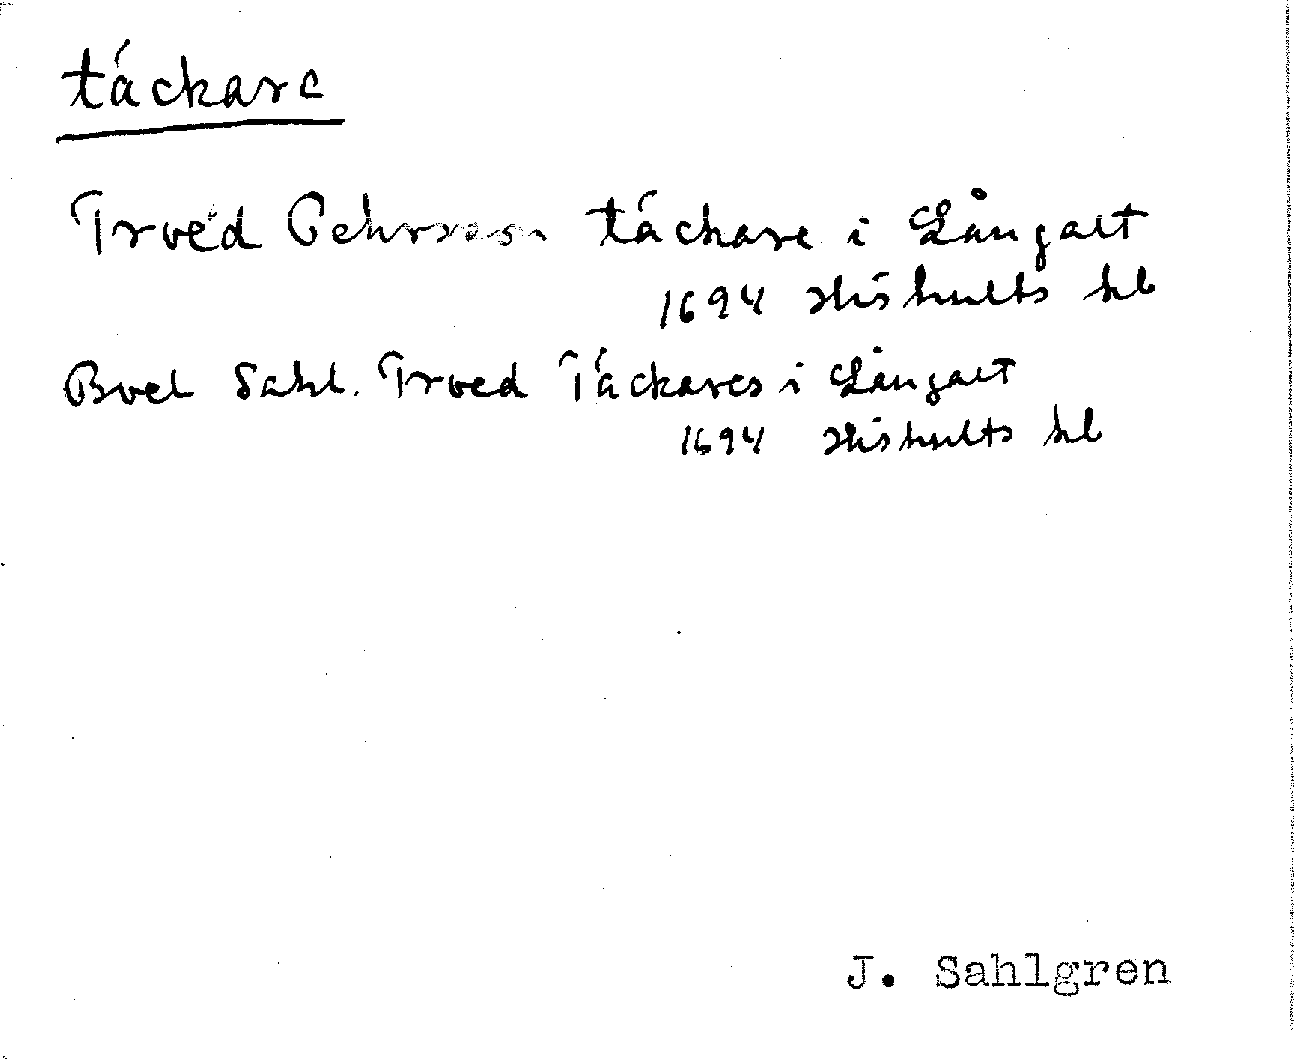 täckare
Troéd Pehrsson täckare i Långalt
1694 Hishults kb
Boel Sahl. Troed Täckares i Långalt
1694 Hishults kb
J. Sahlgren